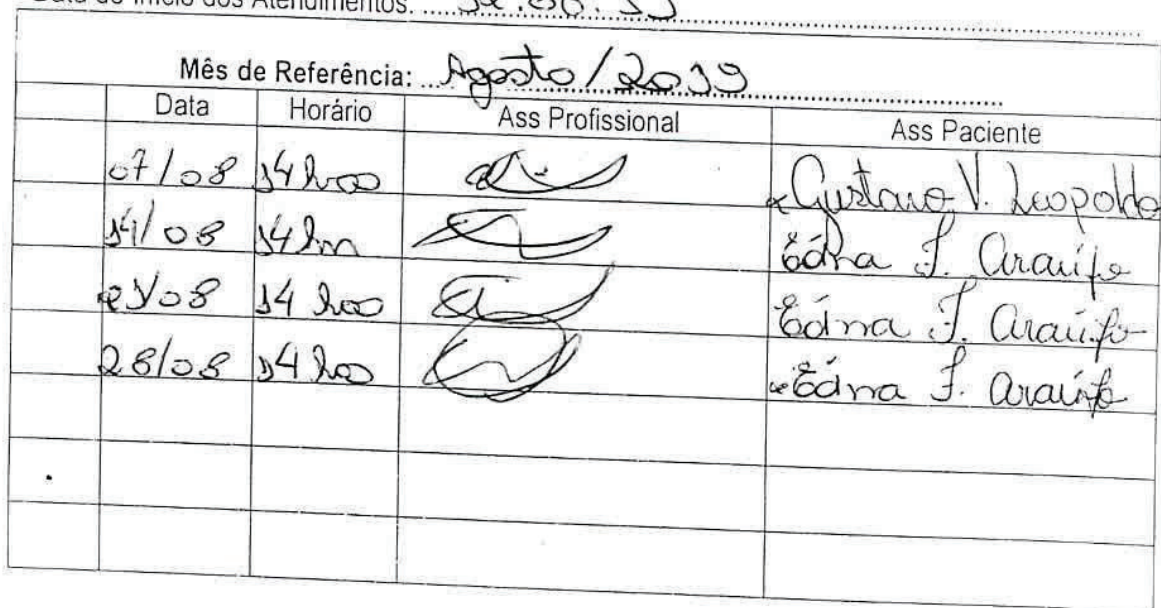 Data de Início dos Atendimentos: 12.06.19
Mês de Referência: Agosto/2019
Data Horário Ass Profissional Ass Paciente
07/08 14h00 Gustavo V. Leopoldo
14/08 14h Edna F. Araújo
21/08 14h00 Edna F. Araújo
28/08 14h00 Edna F. Araújo